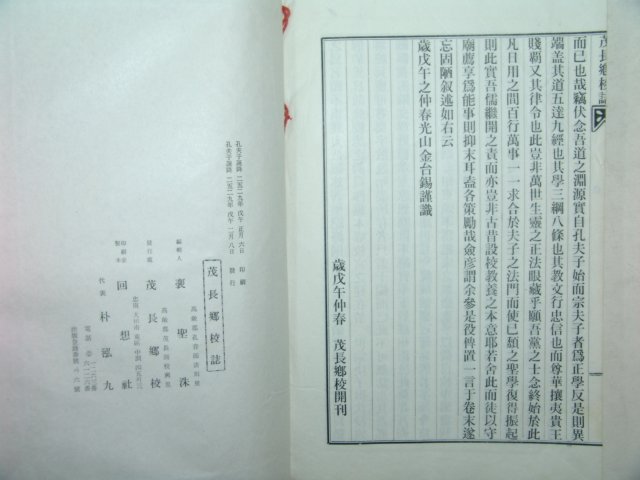 茂長鄕校誌
而已也哉竊伏念吾道之淵源實自孔夫子始而宗夫子者爲正學反是則異
端盖其道五達九經也其學三綱八條也其敎文行忠信也而尊華攘夷貴王
賤覇又其律令也此豈非萬世生靈之正法眼藏乎願吾黨之士念終始於此
凡日用之間百行萬事一一求合於夫子之法門而使已頹之聖學復得振起
則此實吾儒繼開之責而亦豈非古昔設校敎養之本意耶若舍此而徒以守
廟薦享爲能事則抑末耳盍各策勵哉僉彦謂余參是役俾置一言于卷末遂
忘固陋叙述如右云
歲戊午之仲春光山金台錫謹識
歲戊午仲春 茂長鄕校開刊
孔夫子誕降二五二九年戊午正月六日 印刷
孔夫子誕降二五二九年戊午二月八日 發行
茂長鄕校誌
編輯人 裵聖洙
發行處 茂長鄕校
高敞郡茂長面
印刷兼製本 回想社
忠南大田市東區中洞
代表 朴泓九
電話